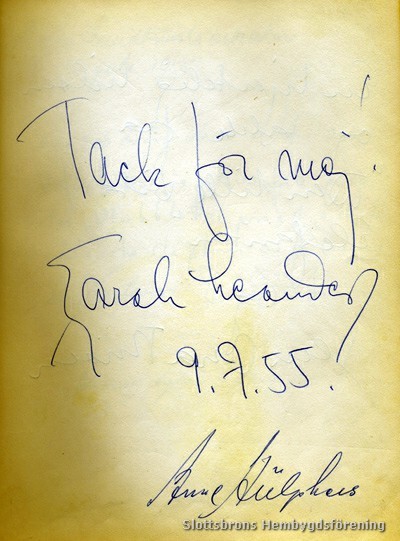 Tack för mej!
Zarah Leander
9.7.55.
Arne Hülphers
Slottsbrons Hembygdsförening